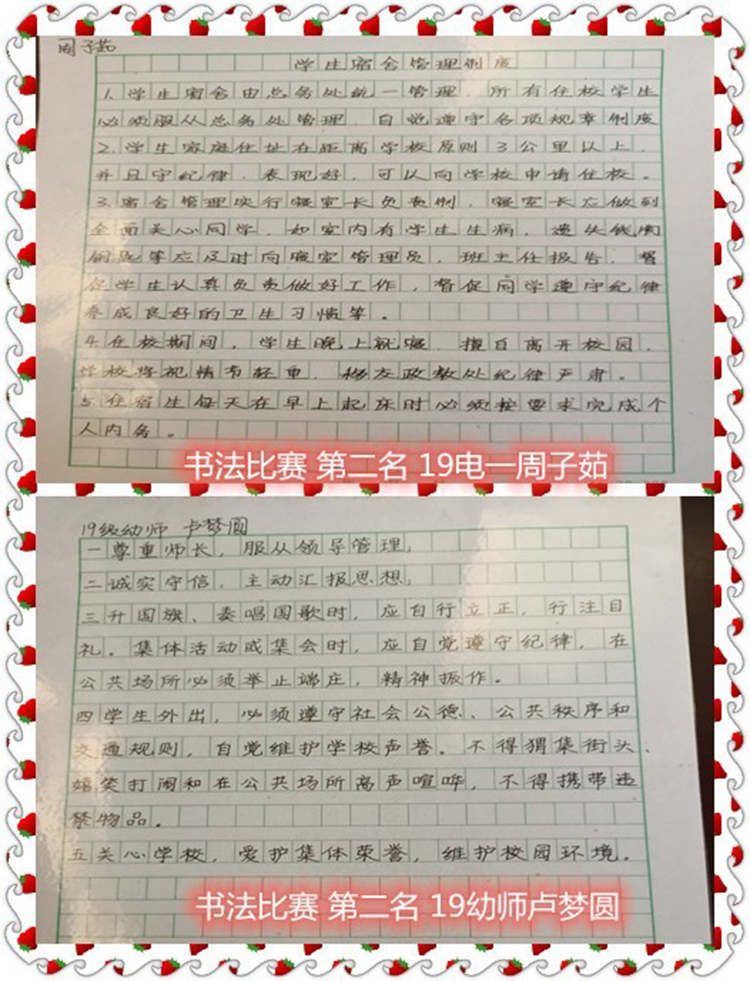 周子茹
学生宿舍管理制度
1.学生宿舍由总务处统一管理．所有住校学生
必须服从总务处管理．自觉遵守各项规章制度
2.学生家庭住址在距离学校原则3公里以上．
并且守纪律．表现好．可以向学校申请住校．
3.宿舍管理实行寝室长负责制，寝室长应做到
全面关心同学．如室内有学生生病．遗失钱闺
钥匙等应及时向寝室管理员，班主任报告．督
促学生认真负责做好工作，督促同学遵守纪律
养成良好的卫生习惯等。
4.在校期间，学生晚上就寝．擅自离开校园．
学校将视情节轻重．移交政教处纪律严肃。
5.住宿生每天在早上起床时必须按要求完成个
人内务。
书法比赛 第二名 19电一周子茹
19级幼师 卢梦圆
一尊重师长，服从领导管理;
二诚实守信，主动汇报思想;
三升国旗、奏唱国歌时，应自行立正，行注目
礼。集体活动或集会时，应自觉遵守纪律，在
公共场所必须举止端庄，精神振作。
四学生外出，必须遵守社会公德、公共秩序和
交通规则，自觉维护学校声誉。不得猬集街头、
嬉笑打闹和在公共场所高声喧哗，不得携带违
禁物品。
五关心学校，爱护集体荣誉，维护校园环境。
书法比赛 第二名 19幼师卢梦圆